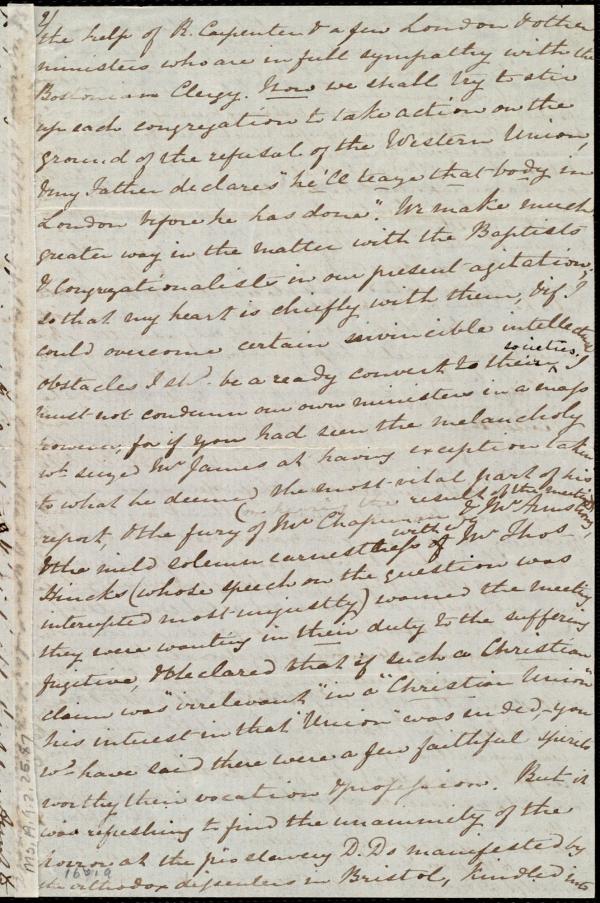 2/
the help of R. Carpenter & a few London & other
ministers who are in full sympathy with the
Bostonian Clergy. Now we shall try to stir
up each congregation to take action on the
ground of the refusal of the Western Union,
& my Father declares "he'll teaze that body in
London before he has done". We make much
greater way in the matter with the Baptists
& Congregationalists in our present agitation,
so that my heart is chiefly with them, & if I
could overcome certain invincible intellectual
obstacles I shd. be a ready convert to their societies. I
must not condemn our own ministers in a mass
however, for if you had seen the melancholy
wh. seized Mr James at having exception taken
to what he deemed the most vital part of his
report, & the fury of Mr Chapman & Mr Armstrong, result of the meeting
& the mild solemn earnestness with wh Mr Thos.
Hincks (whose speech on the question was
interupted most unjustly) warned the meeting
they were wanting in their duty to the suffering
fugitive, & declared that if such a Christian
claim was "irrelevant" in a "Christian Union"
his interest in that "Union" was ended,- you
wd. have said there were a few faithful spirits
worthy their vocation & profession. But it
was refreshing to find the unanimity of the
horror at the pro slavery D.Ds manifested by
the orthodox dissenters in Bristol, kindled into
Ms. A. 9. 2. 25. 87